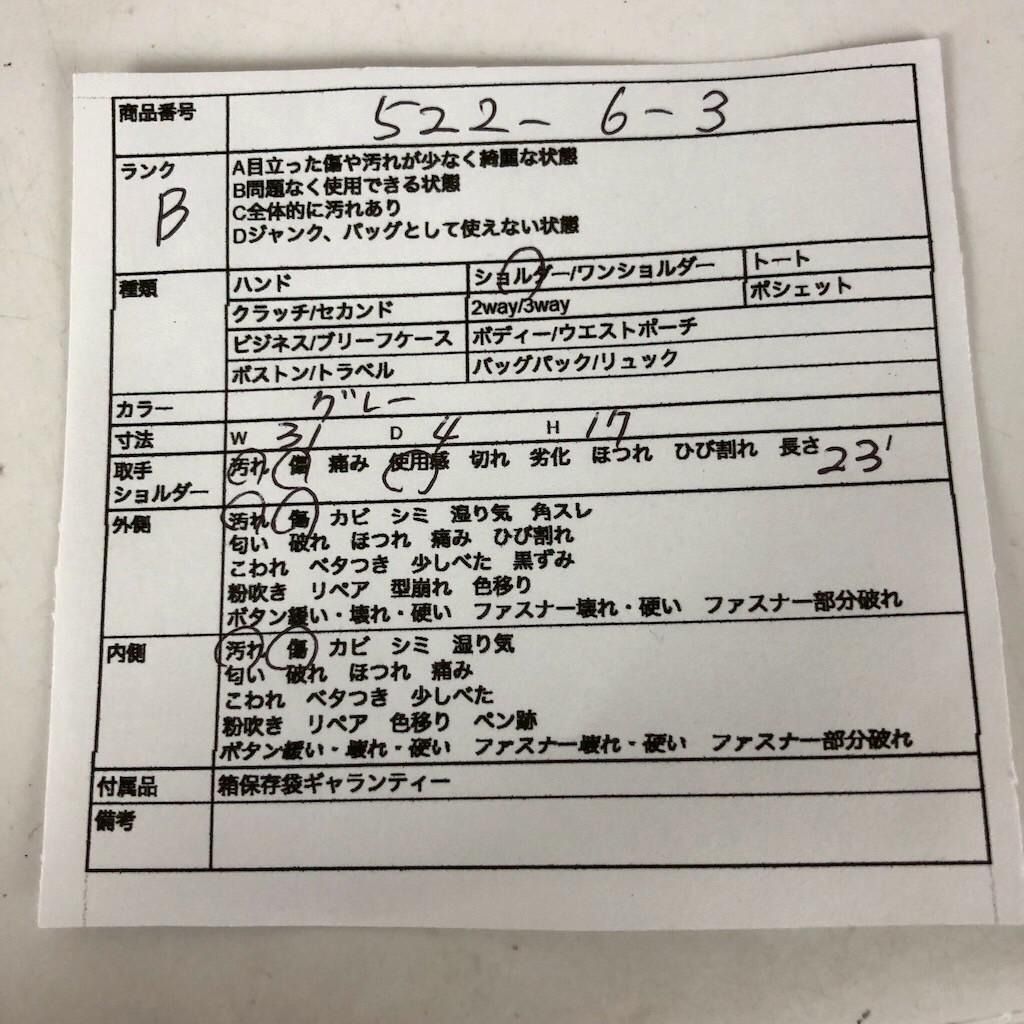 商品番号 522-6-3
ランク B
A目立った傷や汚れが少なく綺麗な状態
B問題なく使用できる状態
C全体的に汚れあり
Dジャンク、バッグとして使えない状態
種類 ハンド ショルダー/ワンショルダー トート
クラッチ/セカンド 2way/3way ポシェット
ビジネス/ブリーフケース ボディー/ウエストポーチ
ボストン/トラベル バッグパック/リュック
カラー グレー
寸法 W 31 D 4 H 17
取手 汚れ 傷 痛み 使用感 切れ 劣化 ほつれ ひび割れ 長さ 23
ショルダー
外側 汚れ 傷 カビ シミ 湿り気 角スレ
匂い 破れ ほつれ 痛み ひび割れ
こわれ ベタつき 少しべた 黒ずみ
粉吹き リペア 型崩れ 色移り
ボタン緩い・壊れ・硬い ファスナー壊れ・硬い ファスナー部分破れ
内側 汚れ 傷 カビ シミ 湿り気
匂い 破れ ほつれ 痛み
こわれ ベタつき 少しべた
粉吹き リペア 色移り ペン跡
ボタン緩い・壊れ・硬い ファスナー壊れ・硬い ファスナー部分破れ
付属品 箱保存袋ギャランティー
備考